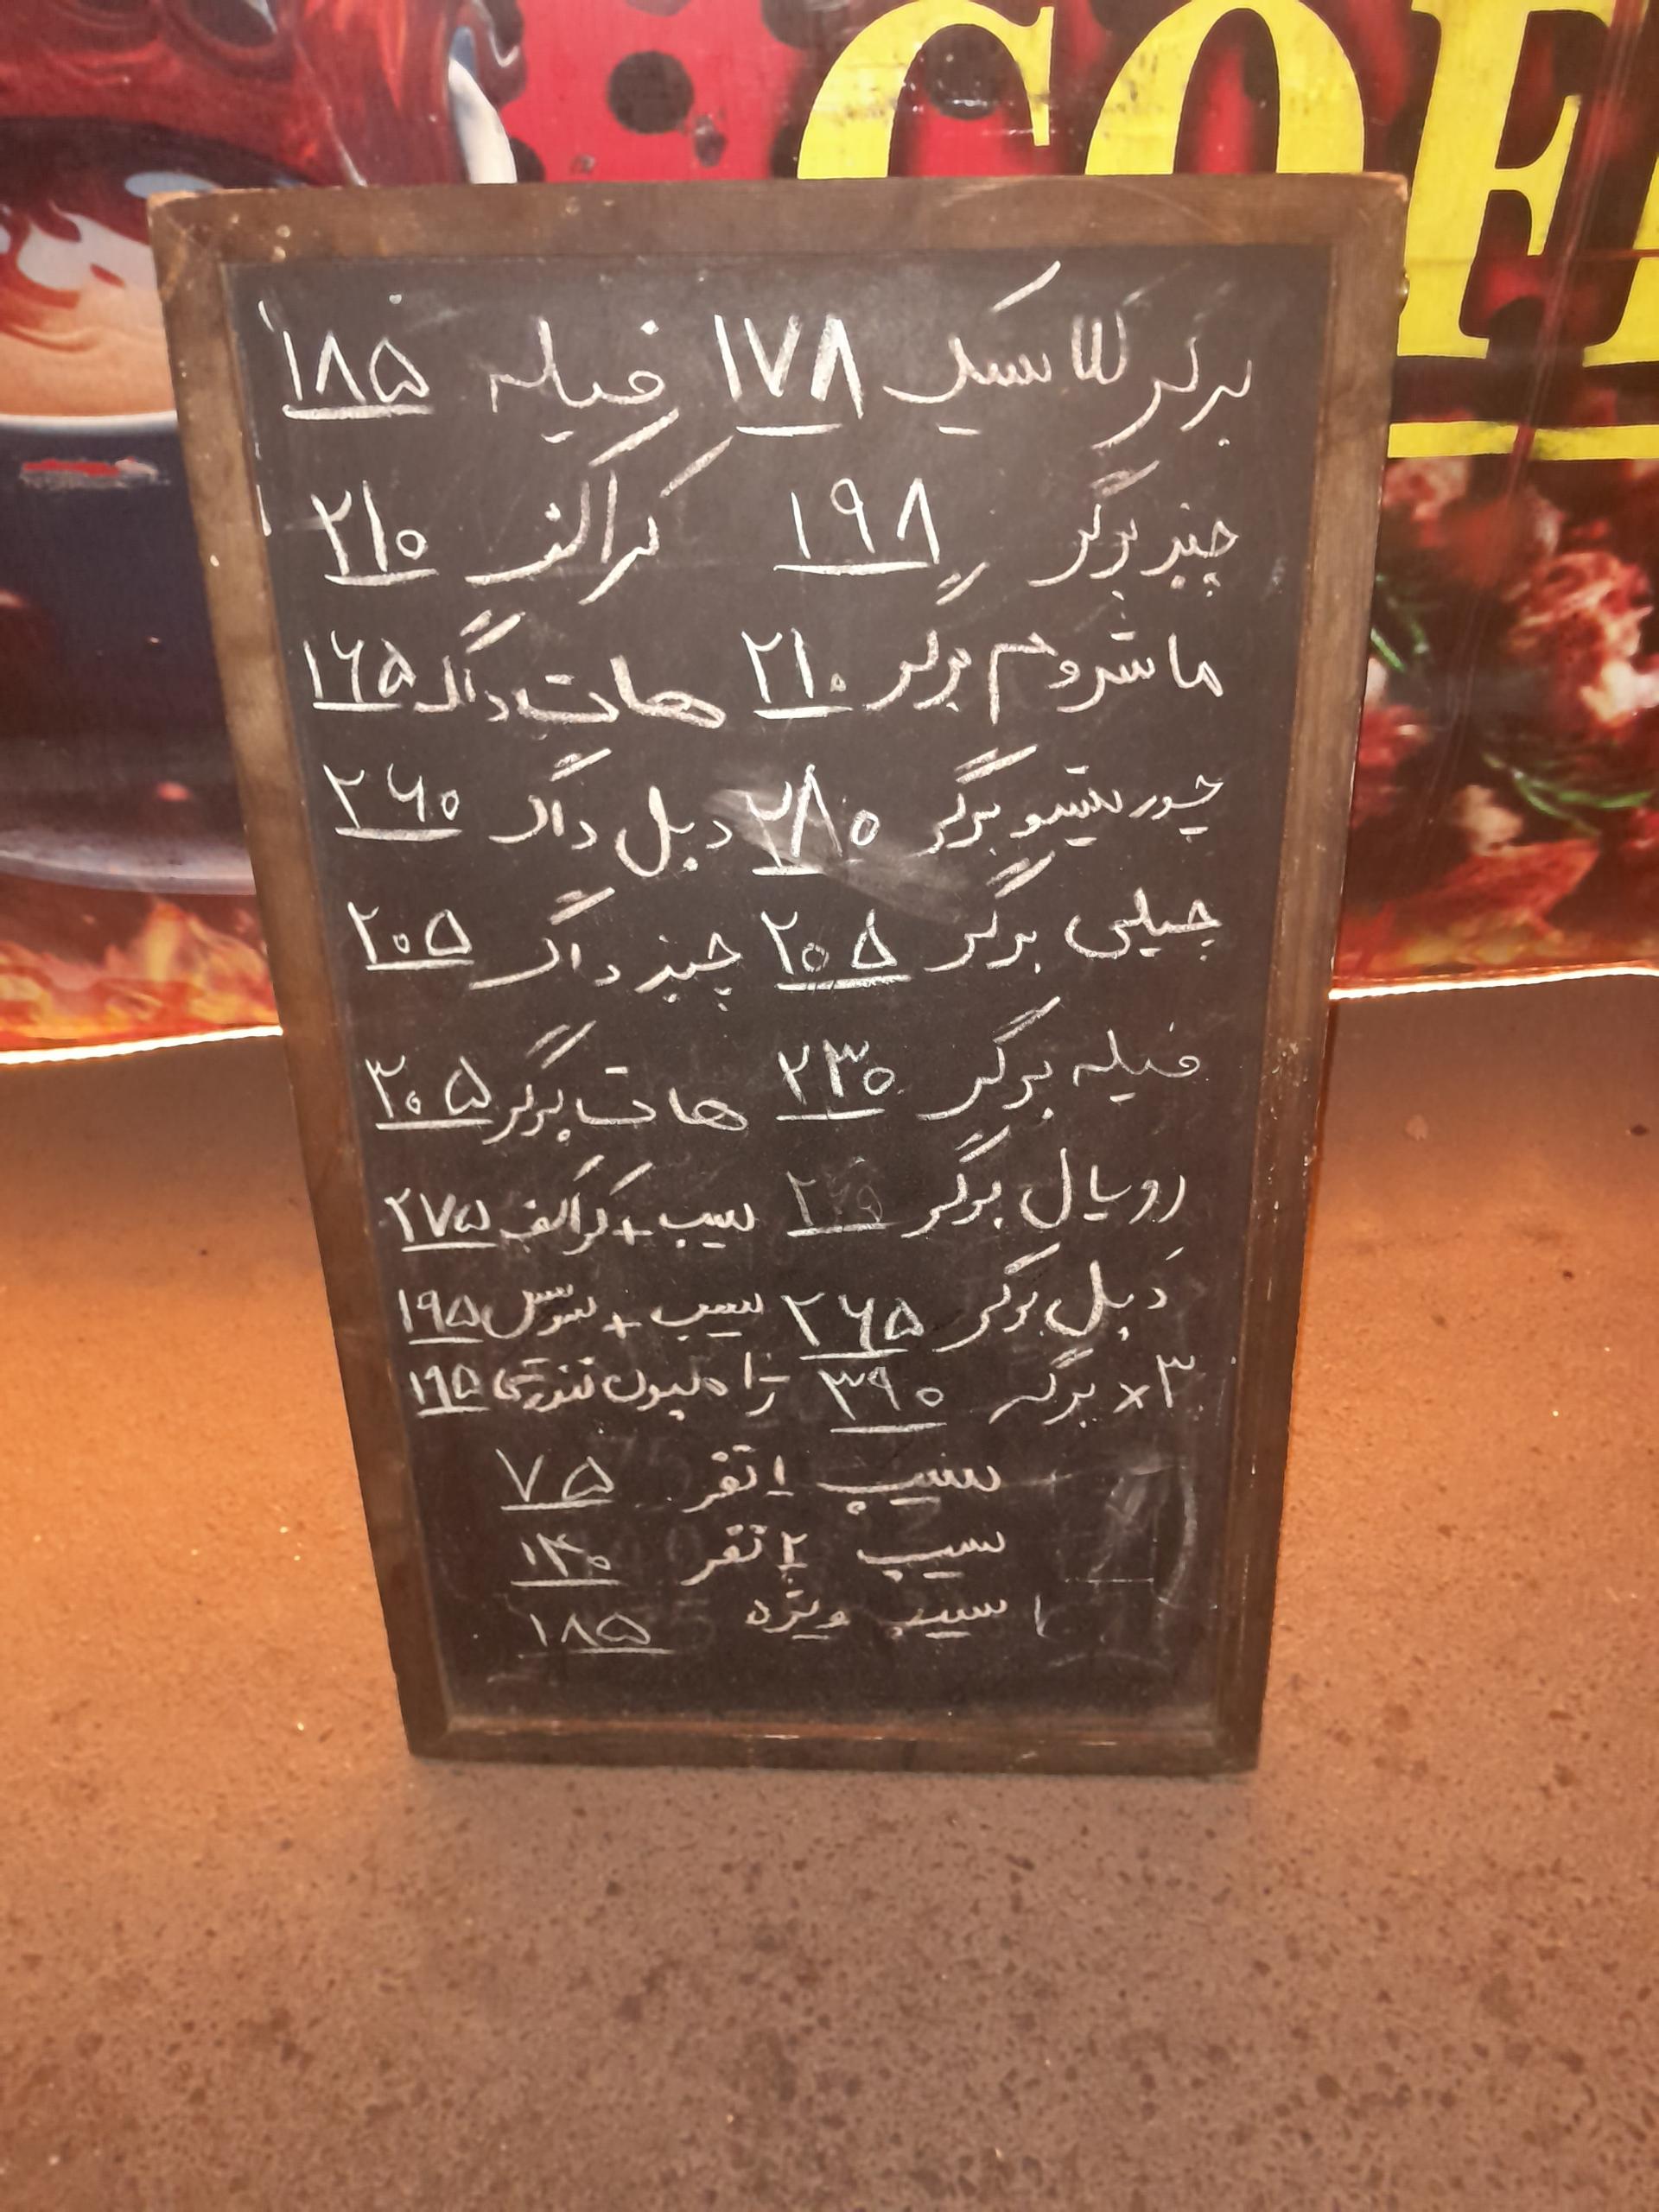 COF
برگر کلاسیک ۱۷۸ فیله ۱۸۵
چیزبرگر ۱۹۸ کراکف ۲۱۰
ماشروم برگر ۲۱۰ هات داگ ۱۶۵
چوریتسو برگر ۲۸۰ دبل داگ ۲۶۰
چیلی برگر ۲۰۵ چیز داگ ۲۰۵
فیله برگر ۲۳۰ هات برگر ۳۰۵
رویال برگر سیب + کراکف ۲۷۵
دبل برگر ۲۶۵ سیب + سوس ۱۹۵
۳× برگر ۳۹۰ ژامبون تنوری ۱۹۵
سیب ۱ نفر ۷۵
سیب ۲ نفر ۱۳۰
سیب ویژه ۱۸۵